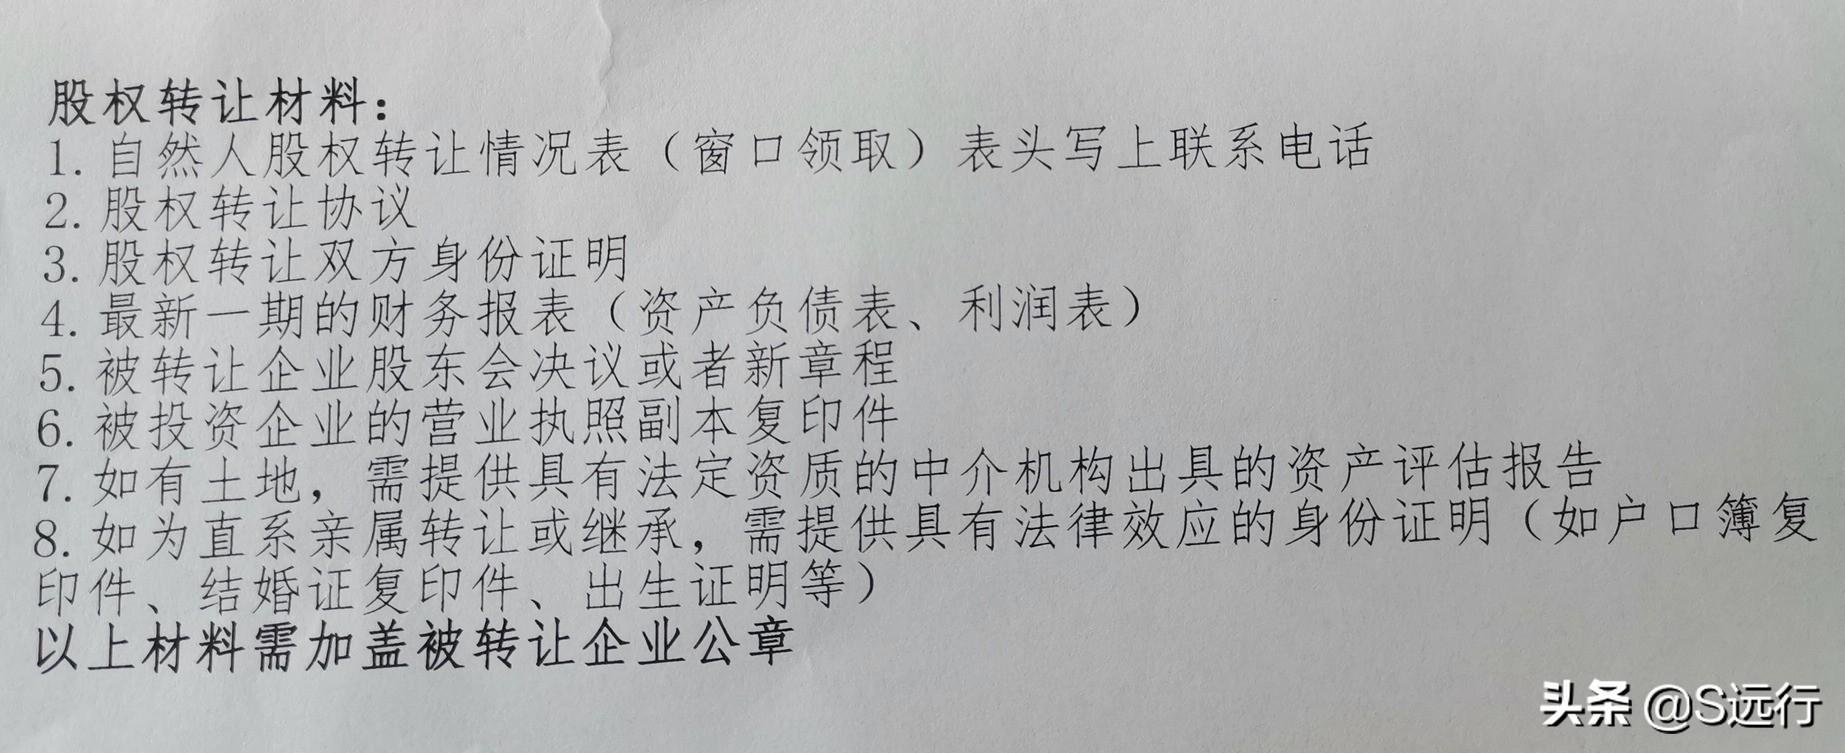 股权转让材料：
1. 自然人股权转让情况表（窗口领取）表头写上联系电话
2. 股权转让协议
3. 股权转让双方身份证明
4. 最新一期的财务报表（资产负债表、利润表）
5. 被转让企业股东会决议或者新章程
6. 被投资企业的营业执照副本复印件
7. 如有土地，需提供具有法定资质的中介机构出具的资产评估报告
8. 如为直系亲属转让或继承，需提供具有法律效应的身份证明（如户口簿复
印件、结婚证复印件、出生证明等）
以上材料需加盖被转让企业公章
头条 @S远行